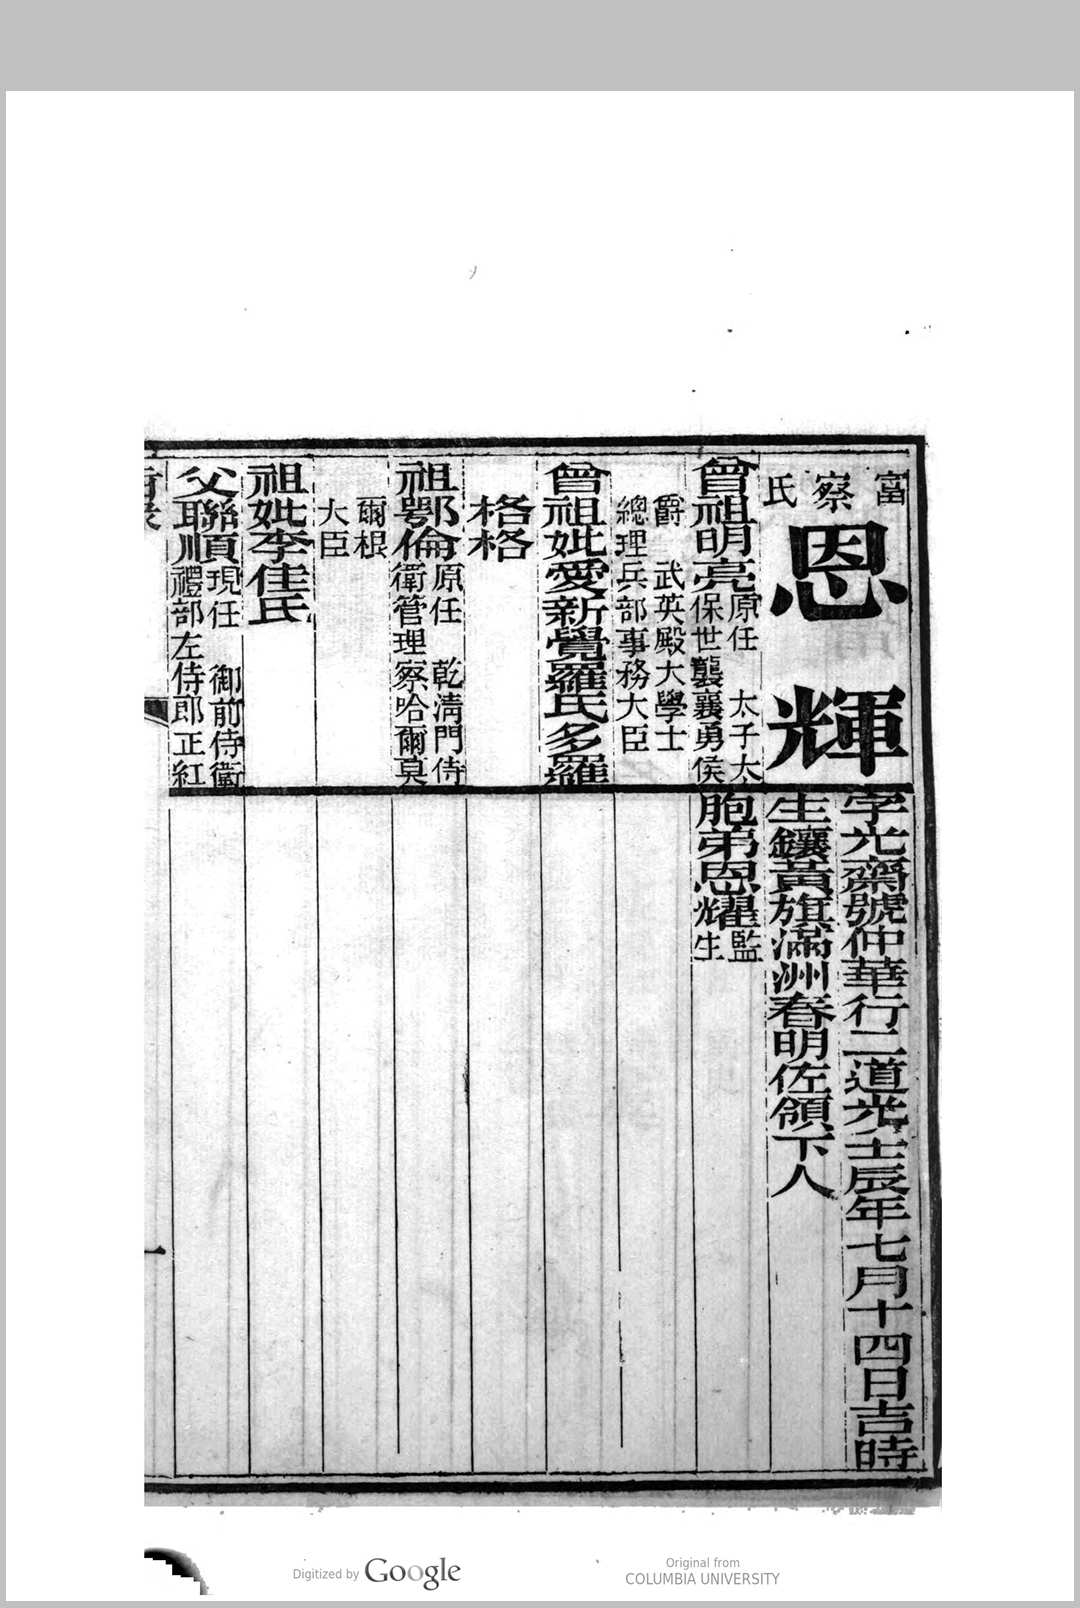 富察氏
恩輝
字光齋號仲華行二道光壬辰年七月十四日吉時
生鑲黃旗滿洲春明佐領下人
曾祖明亮原任　太子太
保世襲襄勇侯
爵　武英殿大學士
總理兵部事務大臣
曾祖妣愛新覺羅氏多羅
格格
祖鄂倫原任　乾清門侍
衛管理察哈爾莫
爾根
大臣
祖妣李佳氏
父聯順現任　御前侍衛
禮部左侍郎正紅
胞弟恩耀監
生
一
Digitized by Google
Original from
COLUMBIA UNIVERSITY